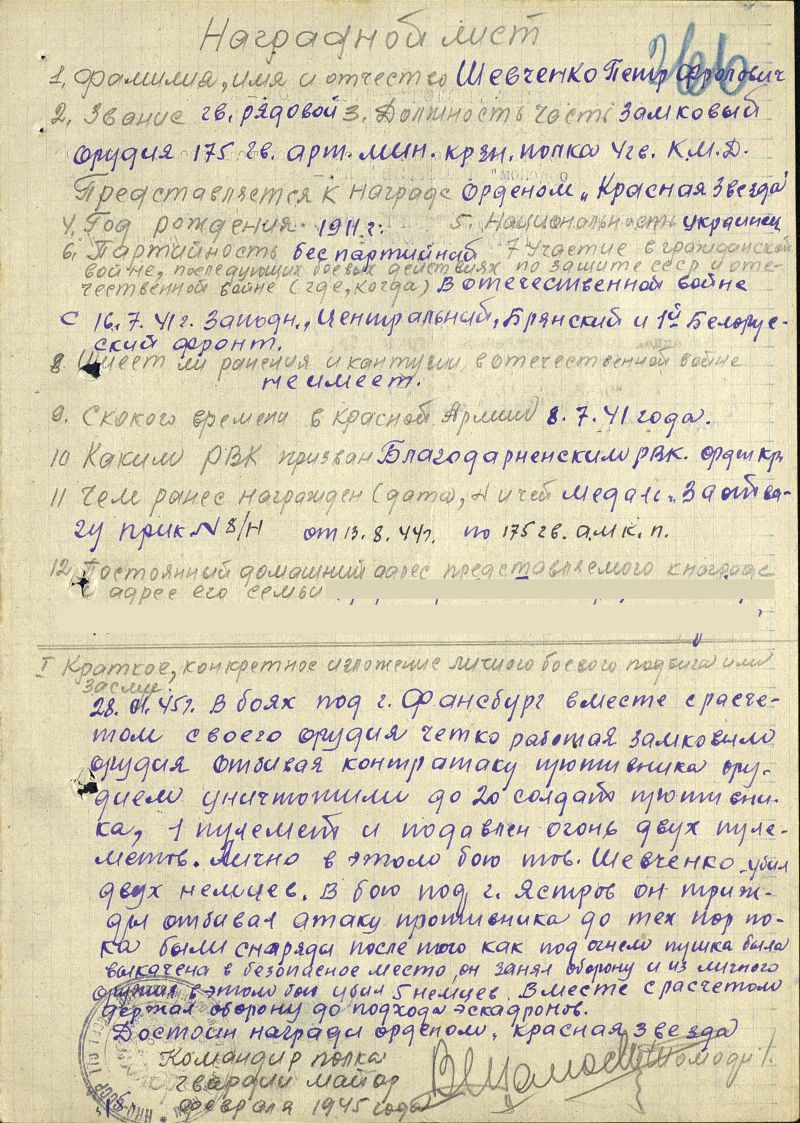 Наградной лист
266
1, Фамилия, имя и отчество Шевченко Петр Фролович
2, Звание гв. рядовой 3. Должность часть замковый
орудия 175 гв. арт. мин. крзн. полка 4 гв. К.М.Д.
Представляется к награде орденом „Красная Звезда"
4. Год рождения 1911 г. 5. Национальность украинец
6. Партийность беспартийный 7 Участие в гражданской
войне, последующих боевых действиях по защите ссср и оте-
чественной войне (где, когда) В отечественной войне
с 16.7.41г. Западн., Центральный, Брянский и 1й Белорус-
ский фронт.
8 Имеет ли ранения и кантузии в отечественной войне
не имеет.
9. Скокого времени в Красной Армии 8.7.41 года.
10 Каким РВК призван Благодарненским рвк. орджкр
11 Чем ранее награжден (дата), и чей медаль „За отва-
гу прик N 8/Н от 13.8.44г. по 175 гв. а.м.к.п.
12, Постоянный домашний адрес представляемого кнаграде
и адрес его семьи
I Краткое, конкретное изложение личного боевого подвига или
заслуг.
28.01.45г. В боях под г. Фансбург вместе срасче-
том своего орудия четко работая замковым
орудия отбивая контратаку противника ору-
дием уничтожили до 20 солдат противни-
ка, 1 пулемет и подавлен огонь двух пуле-
метов. Лично в этом бою тов. Шевченко убил
двух немцев. В бою под г. Ястров он триж-
ды отбивал атаку противника до тех пор по-
ка были снаряды после того как под огнем пушка была
выкачена в безопасное место, он занял оборону и из личного
оружия в этом бою убил 5 немцев. Вместе с расчетом
держал оборону до подхода эскадронов.
Достоин награди орденом „Красная Звезда
Командир полка
Гвардии майор
февраля 1945 года